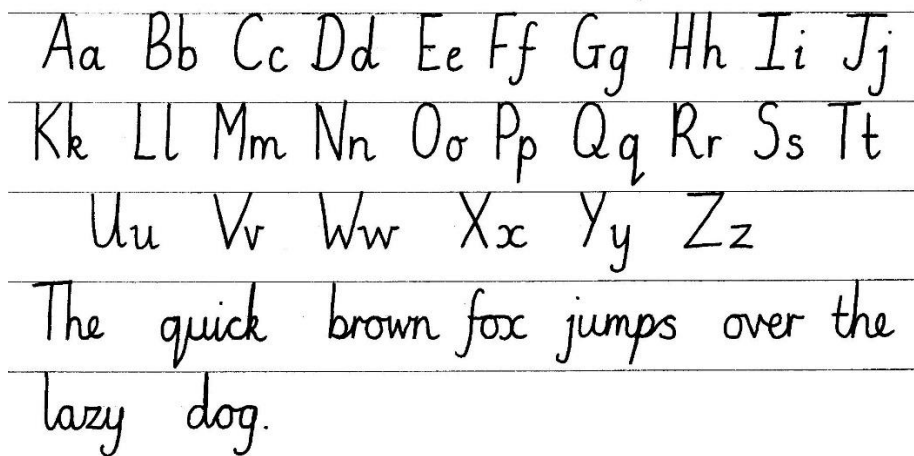 Aa Bb Cc Dd Ee Ff Gg Hh Ii Jj
Kk Ll Mm Nn Oo Pp Qq Rr Ss Tt
Uu Vv Ww Xx Yy Zz
The quick brown fox jumps over the
lazy dog.